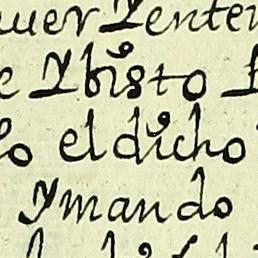 uer Yente
e Ybisto
lo eldicho
Ymando